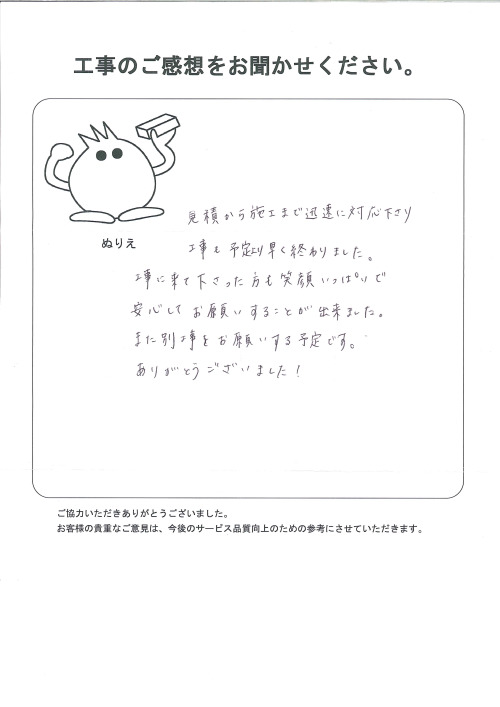 工事のご感想をお聞かせください。
ぬりえ
見積から施工まで迅速に対応下さり
工事も予定より早く終わりました。
工事に来て下さった方も笑顔いっぱいで
安心してお願いすることが出来ました。
また別工事をお願いする予定です。
ありがとうございました!
ご協力いただきありがとうございました。
お客様の貴重なご意見は、今後のサービス品質向上のための参考にさせていただきます。